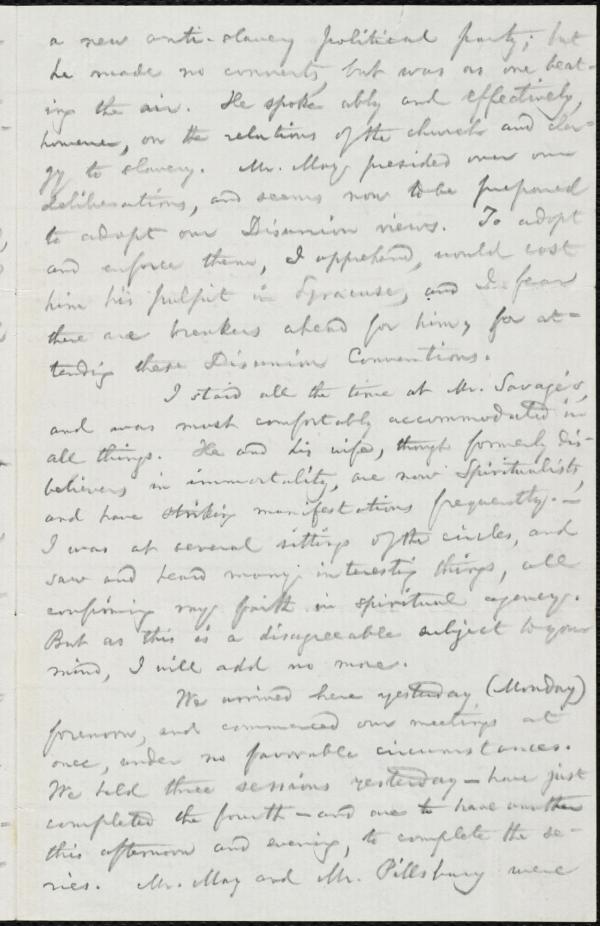 a new anti-slavery political party; but
he made no converts, but was as one beat-
ing the air. He spoke ably and effectively,
however, on the relations of the church and cler-
gy to slavery. Mr. May presided over our
deliberations, and seems now to be prepared
to adopt our Disunion views. To adopt
and enforce them, I apprehend, would cost
him his pulpit in Syracuse, and I fear
there are breakers ahead for him, for at-
tending these Disunion Conventions.
I staid all the time at Mr. Savage's,
and was most comfortably accommodated in
all things. He and his wife, though formerly dis-
believers in immortality, are now Spiritualists,
and have striking manifestations frequently. —
I was at several sittings of the circles, and
saw and heard many interesting things, all
confirming my faith in spiritual agency.
But as this is a disagreeable subject to your
mind, I will add no more.
We arrived here yesterday (Monday)
forenoon, and commenced our meetings at
once, under no favorable circumstances.
We held three sessions yesterday — have just
completed the fourth — and are to have another
this afternoon and evening, to complete the se-
ries. Mr. May and Mr. Pillsbury were